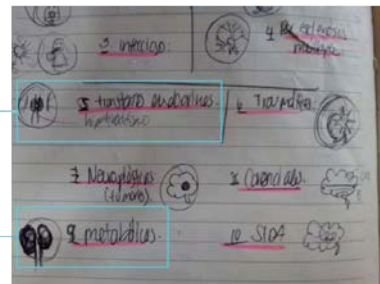 3 infeccioso.
4 Por esclerosis
multiple
5 trastorno endocrinos.
hipotiroidismo
6 Traumatica.
7 Neuroplasicas
(tumores).
8 Carenciales.
9 metabólicas.
10 SIDA